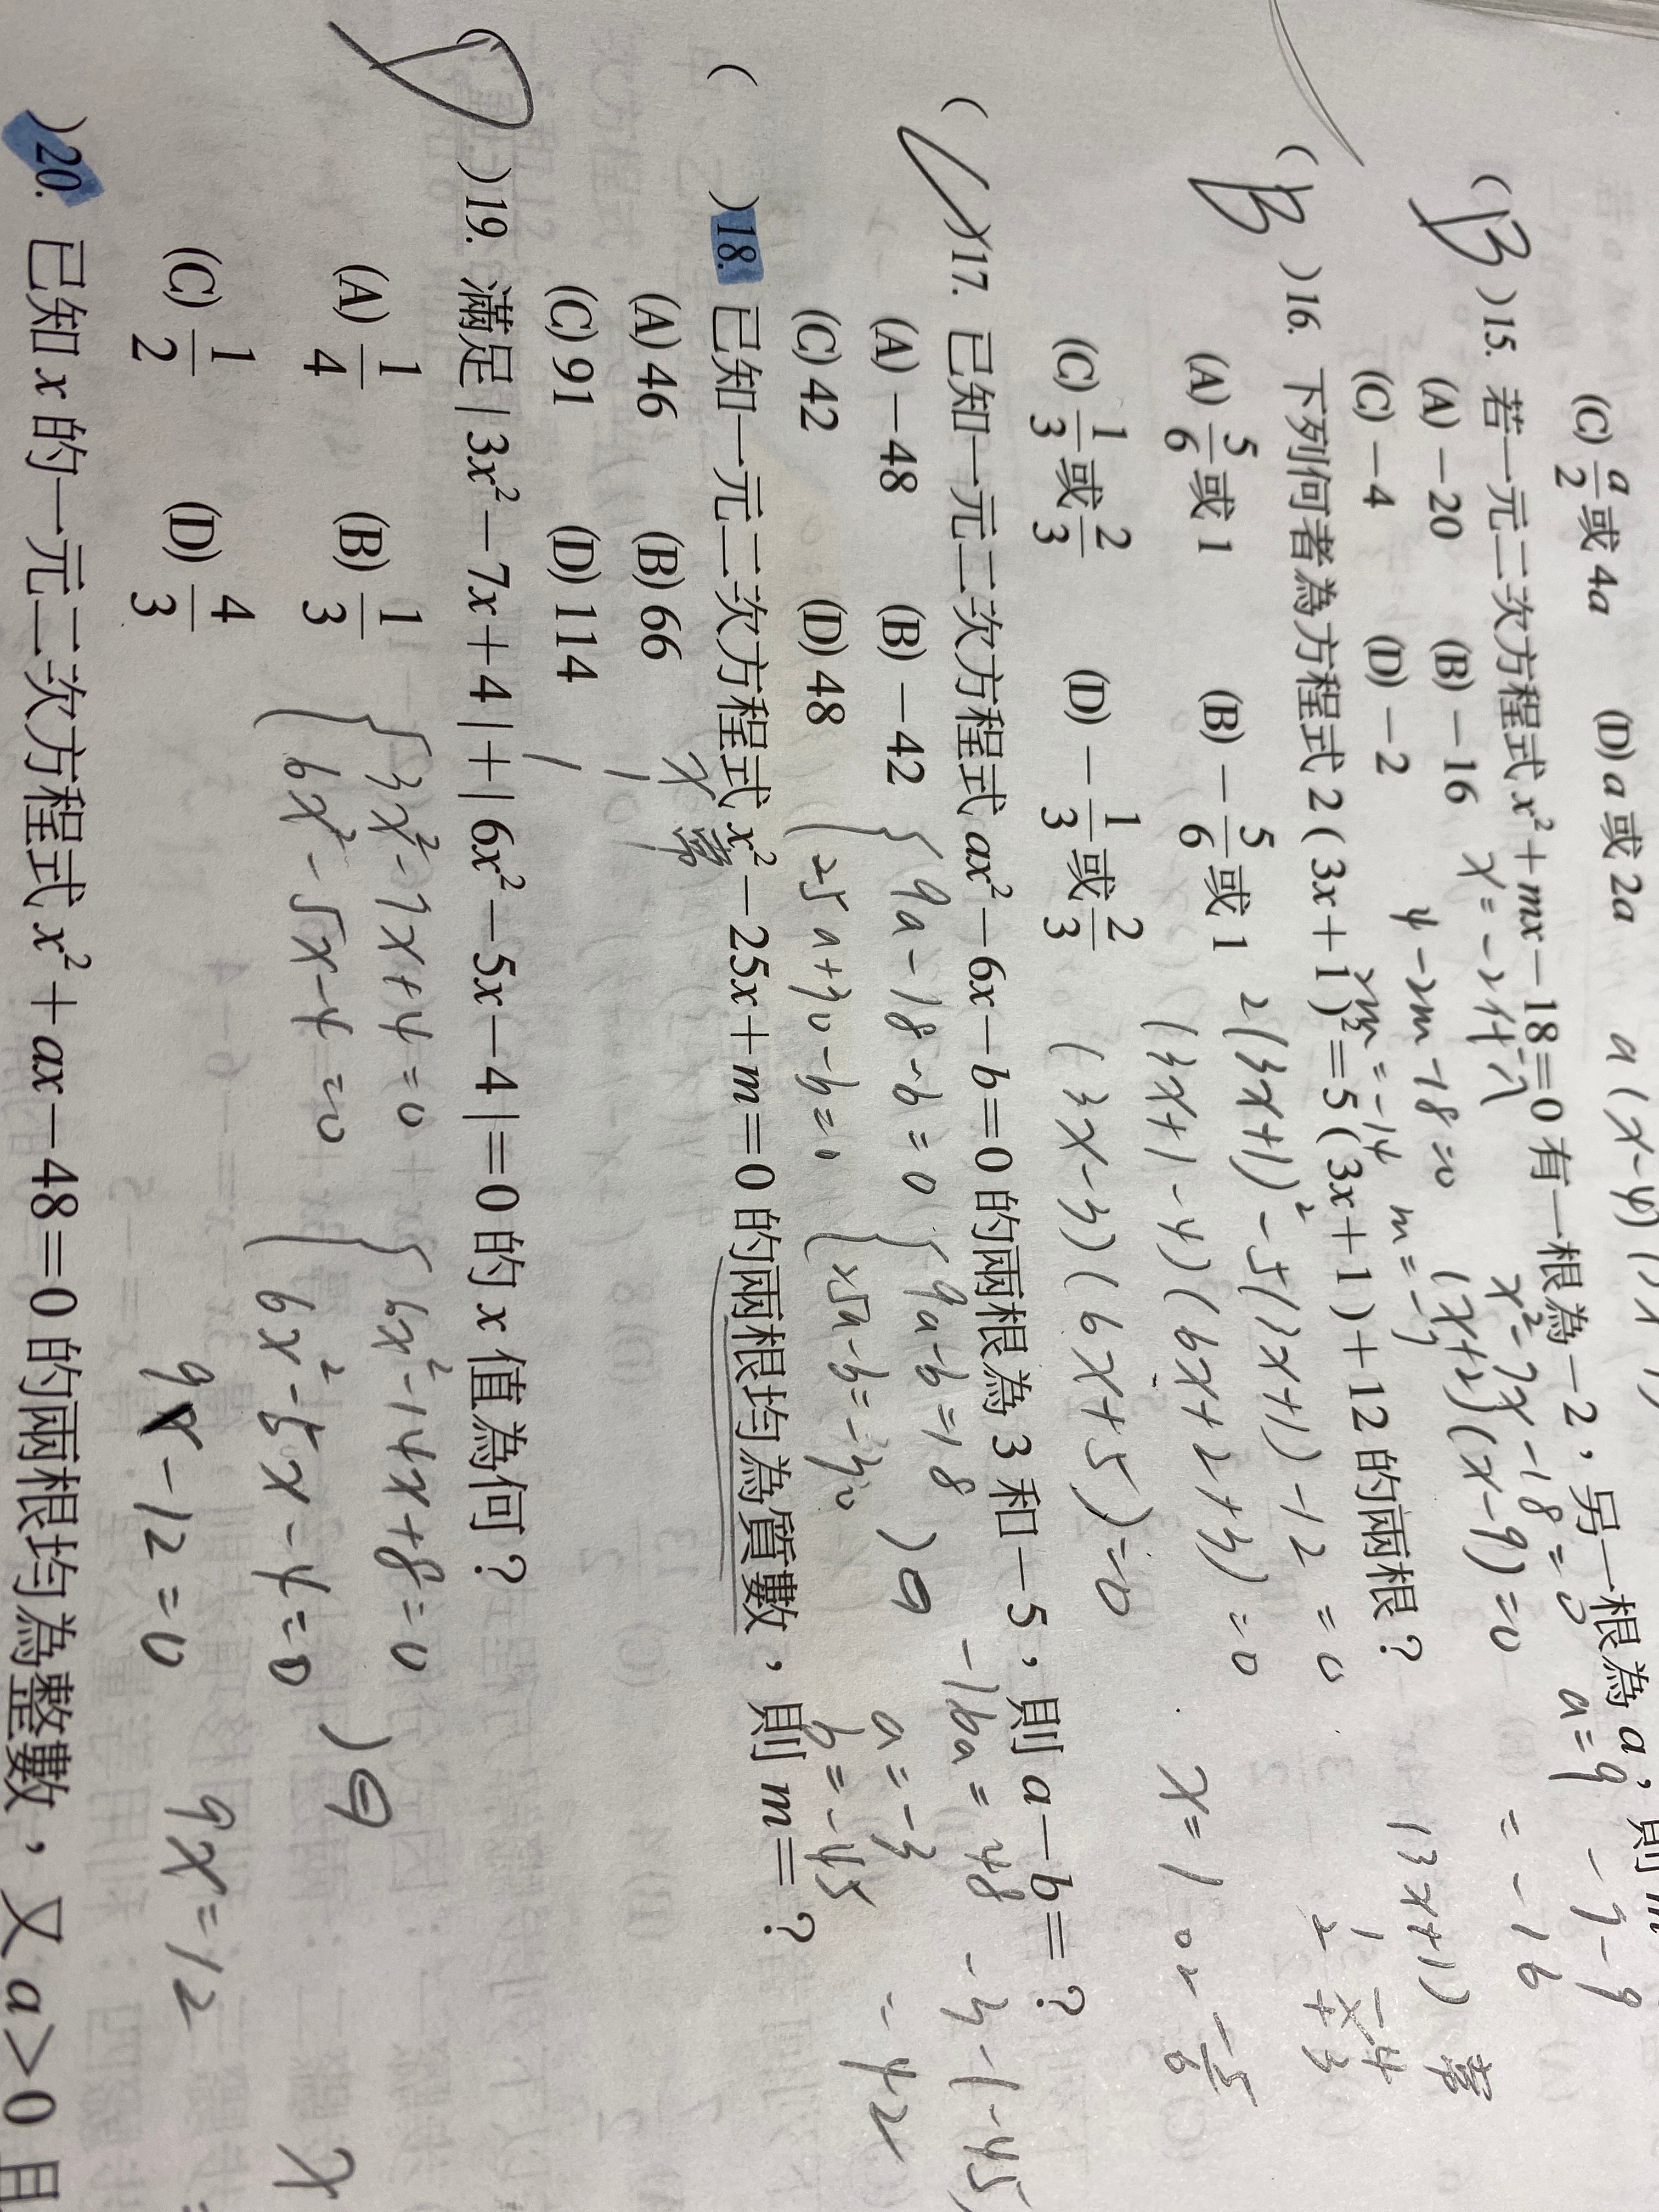 (C) a/2 或 4a (D) a 或 2a
( B )15. 若一元二次方程式 x²+mx-18=0 有一根為-2，另一根為 a，則
(A) -20 (B) -16
(C) -4 (D) -2
x=-2代入
4-2m-18=0
-2m=14 m=-7
x²-7x-18=0
(x+2)(x-9)=0
a=9
-7-9
=-16
( B )16. 下列何者為方程式 2(3x+1)²=5(3x+1)+12 的兩根？
(A) 5/6 或 1 (B) -5/6 或 1
(C) 1/3 或 2/3 (D) -1/3 或 2/3
2(3x+1)²-5(3x+1)-12=0
(3x+1-4)(6x+2+3)=0
(3x-3)(6x+5)=0
x=1 or -5/6
(3x+1)
1 -4
2 +3
( )17. 已知一元二次方程式 ax²-6x-b=0 的兩根為 3 和-5，則 a-b=？
(A) -48 (B) -42
(C) 42 (D) 48
9a-18-b=0
25a+30-b=0
9a-b=18
25a-b=-30
-16a=48
a=-3
b=-45
-3-(-45)
=42
( )18. 已知一元二次方程式 x²-25x+m=0 的兩根均為質數，則 m=？
(A) 46 (B) 66
(C) 91 (D) 114
( D )19. 滿足|3x²-7x+4|+|6x²-5x-4|=0 的 x 值為何？
(A) 1/4 (B) 1/3
(C) 1/2 (D) 4/3
3x²-7x+4=0
6x²-5x-4=0
6x²-14x+8=0
6x²-5x-4=0
9x-12=0
9x=12
)20. 已知 x 的一元二次方程式 x²+ax-48=0 的兩根均為整數，又 a>0 且